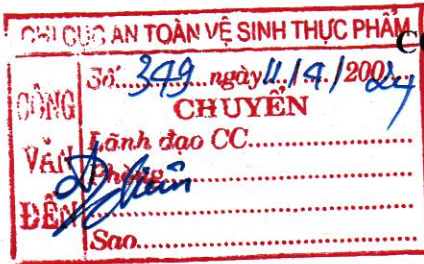 CHI CỤC AN TOÀN VỆ SINH THỰC PHẨM
CÔNG VĂN ĐẾN
Số: 349 ngày 11/4/2002024
CHUYỂN
Lãnh đạo CC
Phòng
Sao